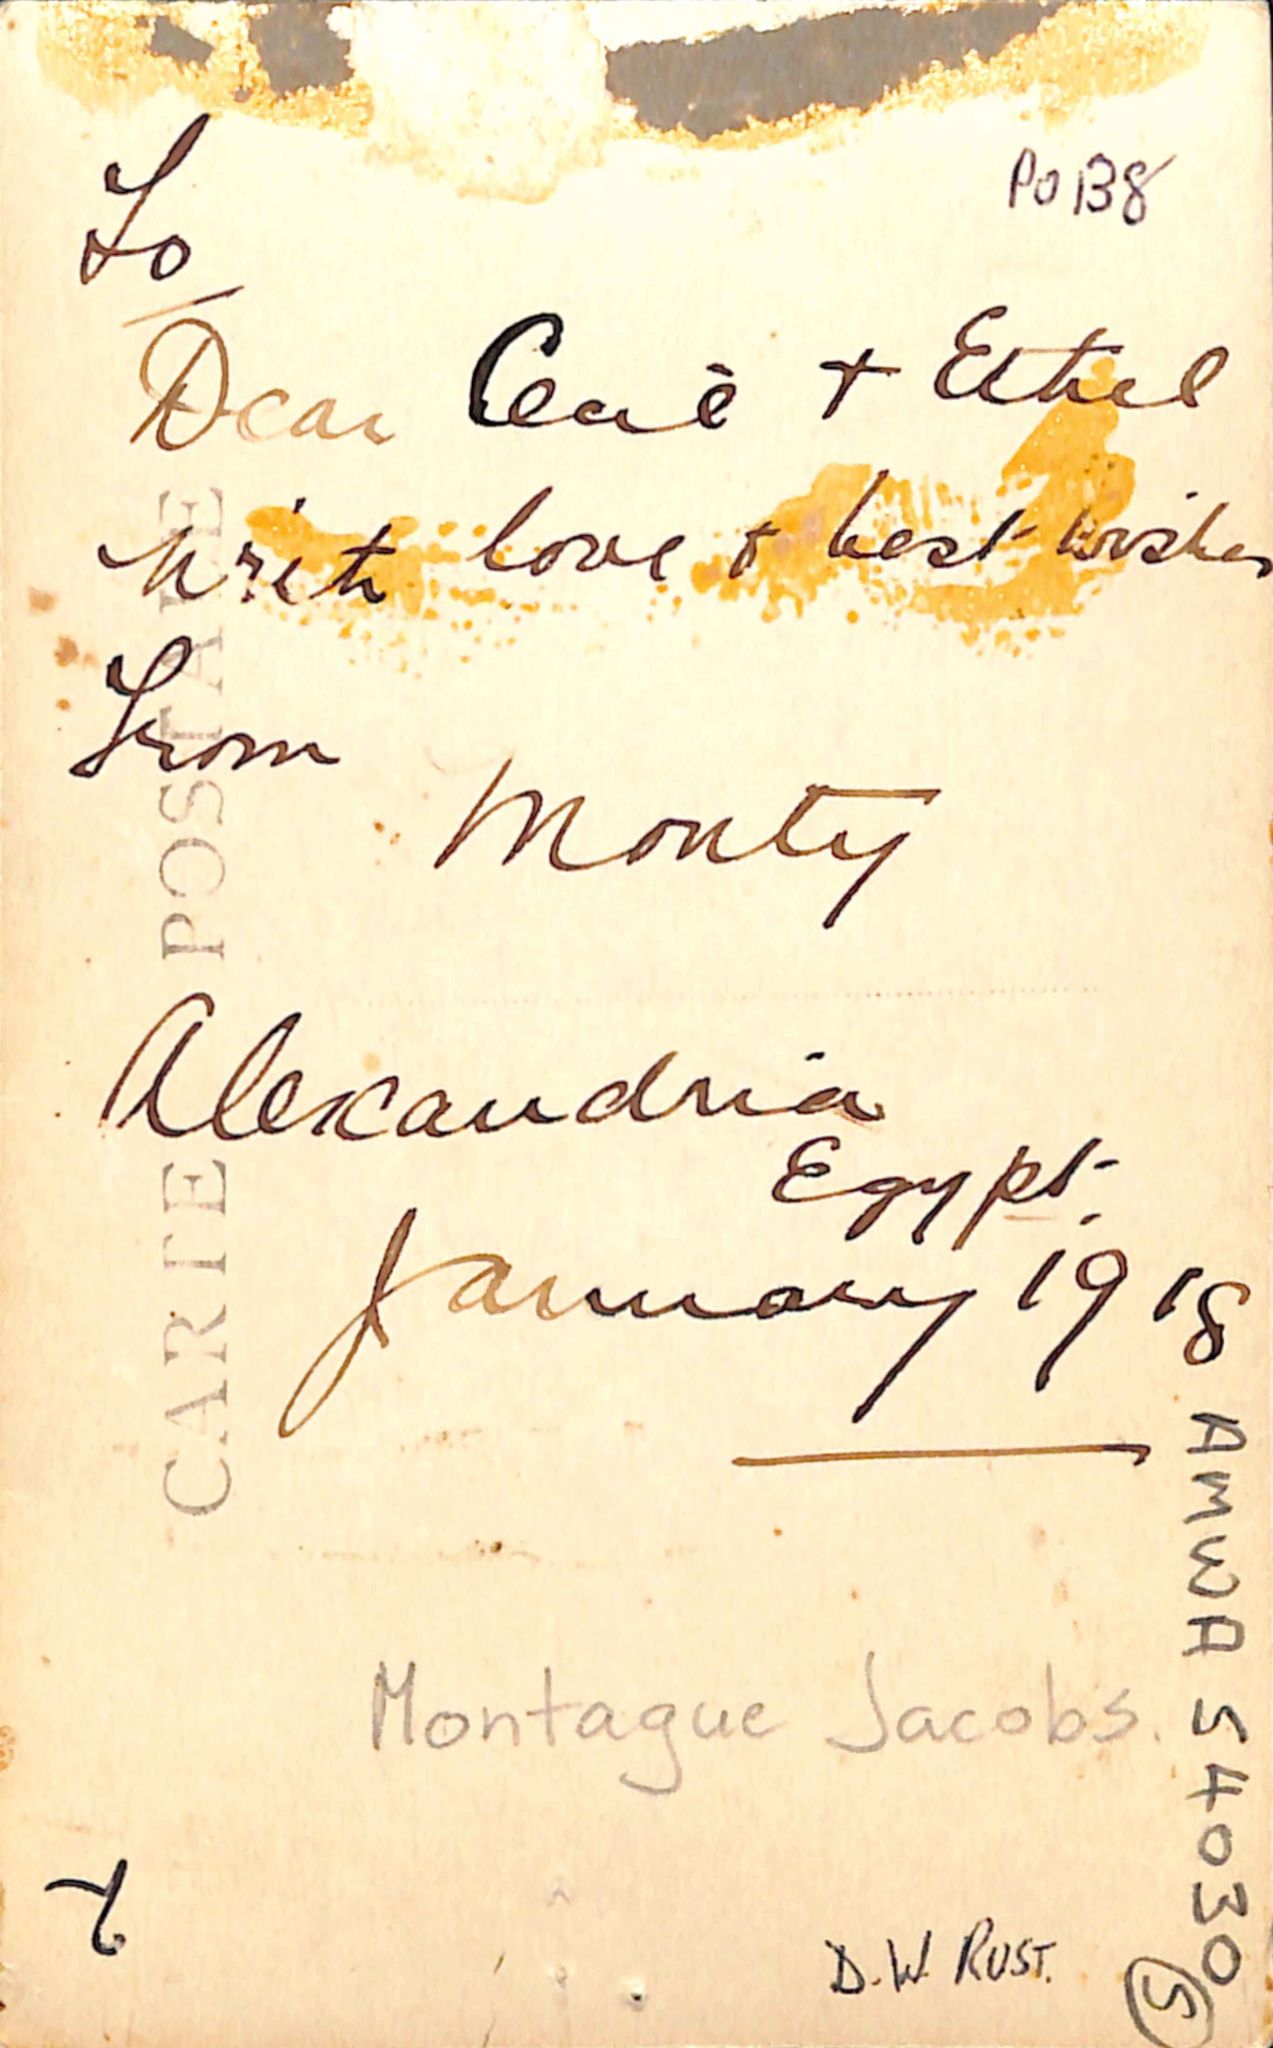 PO 138
To
Dear Cecil + Ethel
with love + best wishes
from
Monty
Alexandria
Egypt.
January 1918
CARTE POSTALE
Montague Jacobs.
AMWA 54030
5
D.W. RUST.